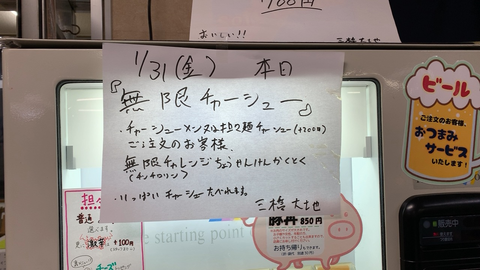 700円
おいしい!!
三橋 大地
1/31(金) 本日
『無限チャーシュー』
・チャーシューメン又は担々麺チャーシュー(+200円)
ご注文のお客様
無限チャレンジちょうせんけんかくとく
(チンチロリン)
・いっぱい チャーシュー たべれます。
三橋 大地
ビール
ご注文のお客様、
おつまみ
サービス
いたします!
担々
普通
+100円
チーズ
the starting point
豚丼 850円
お持ち帰りもできます。
販売中